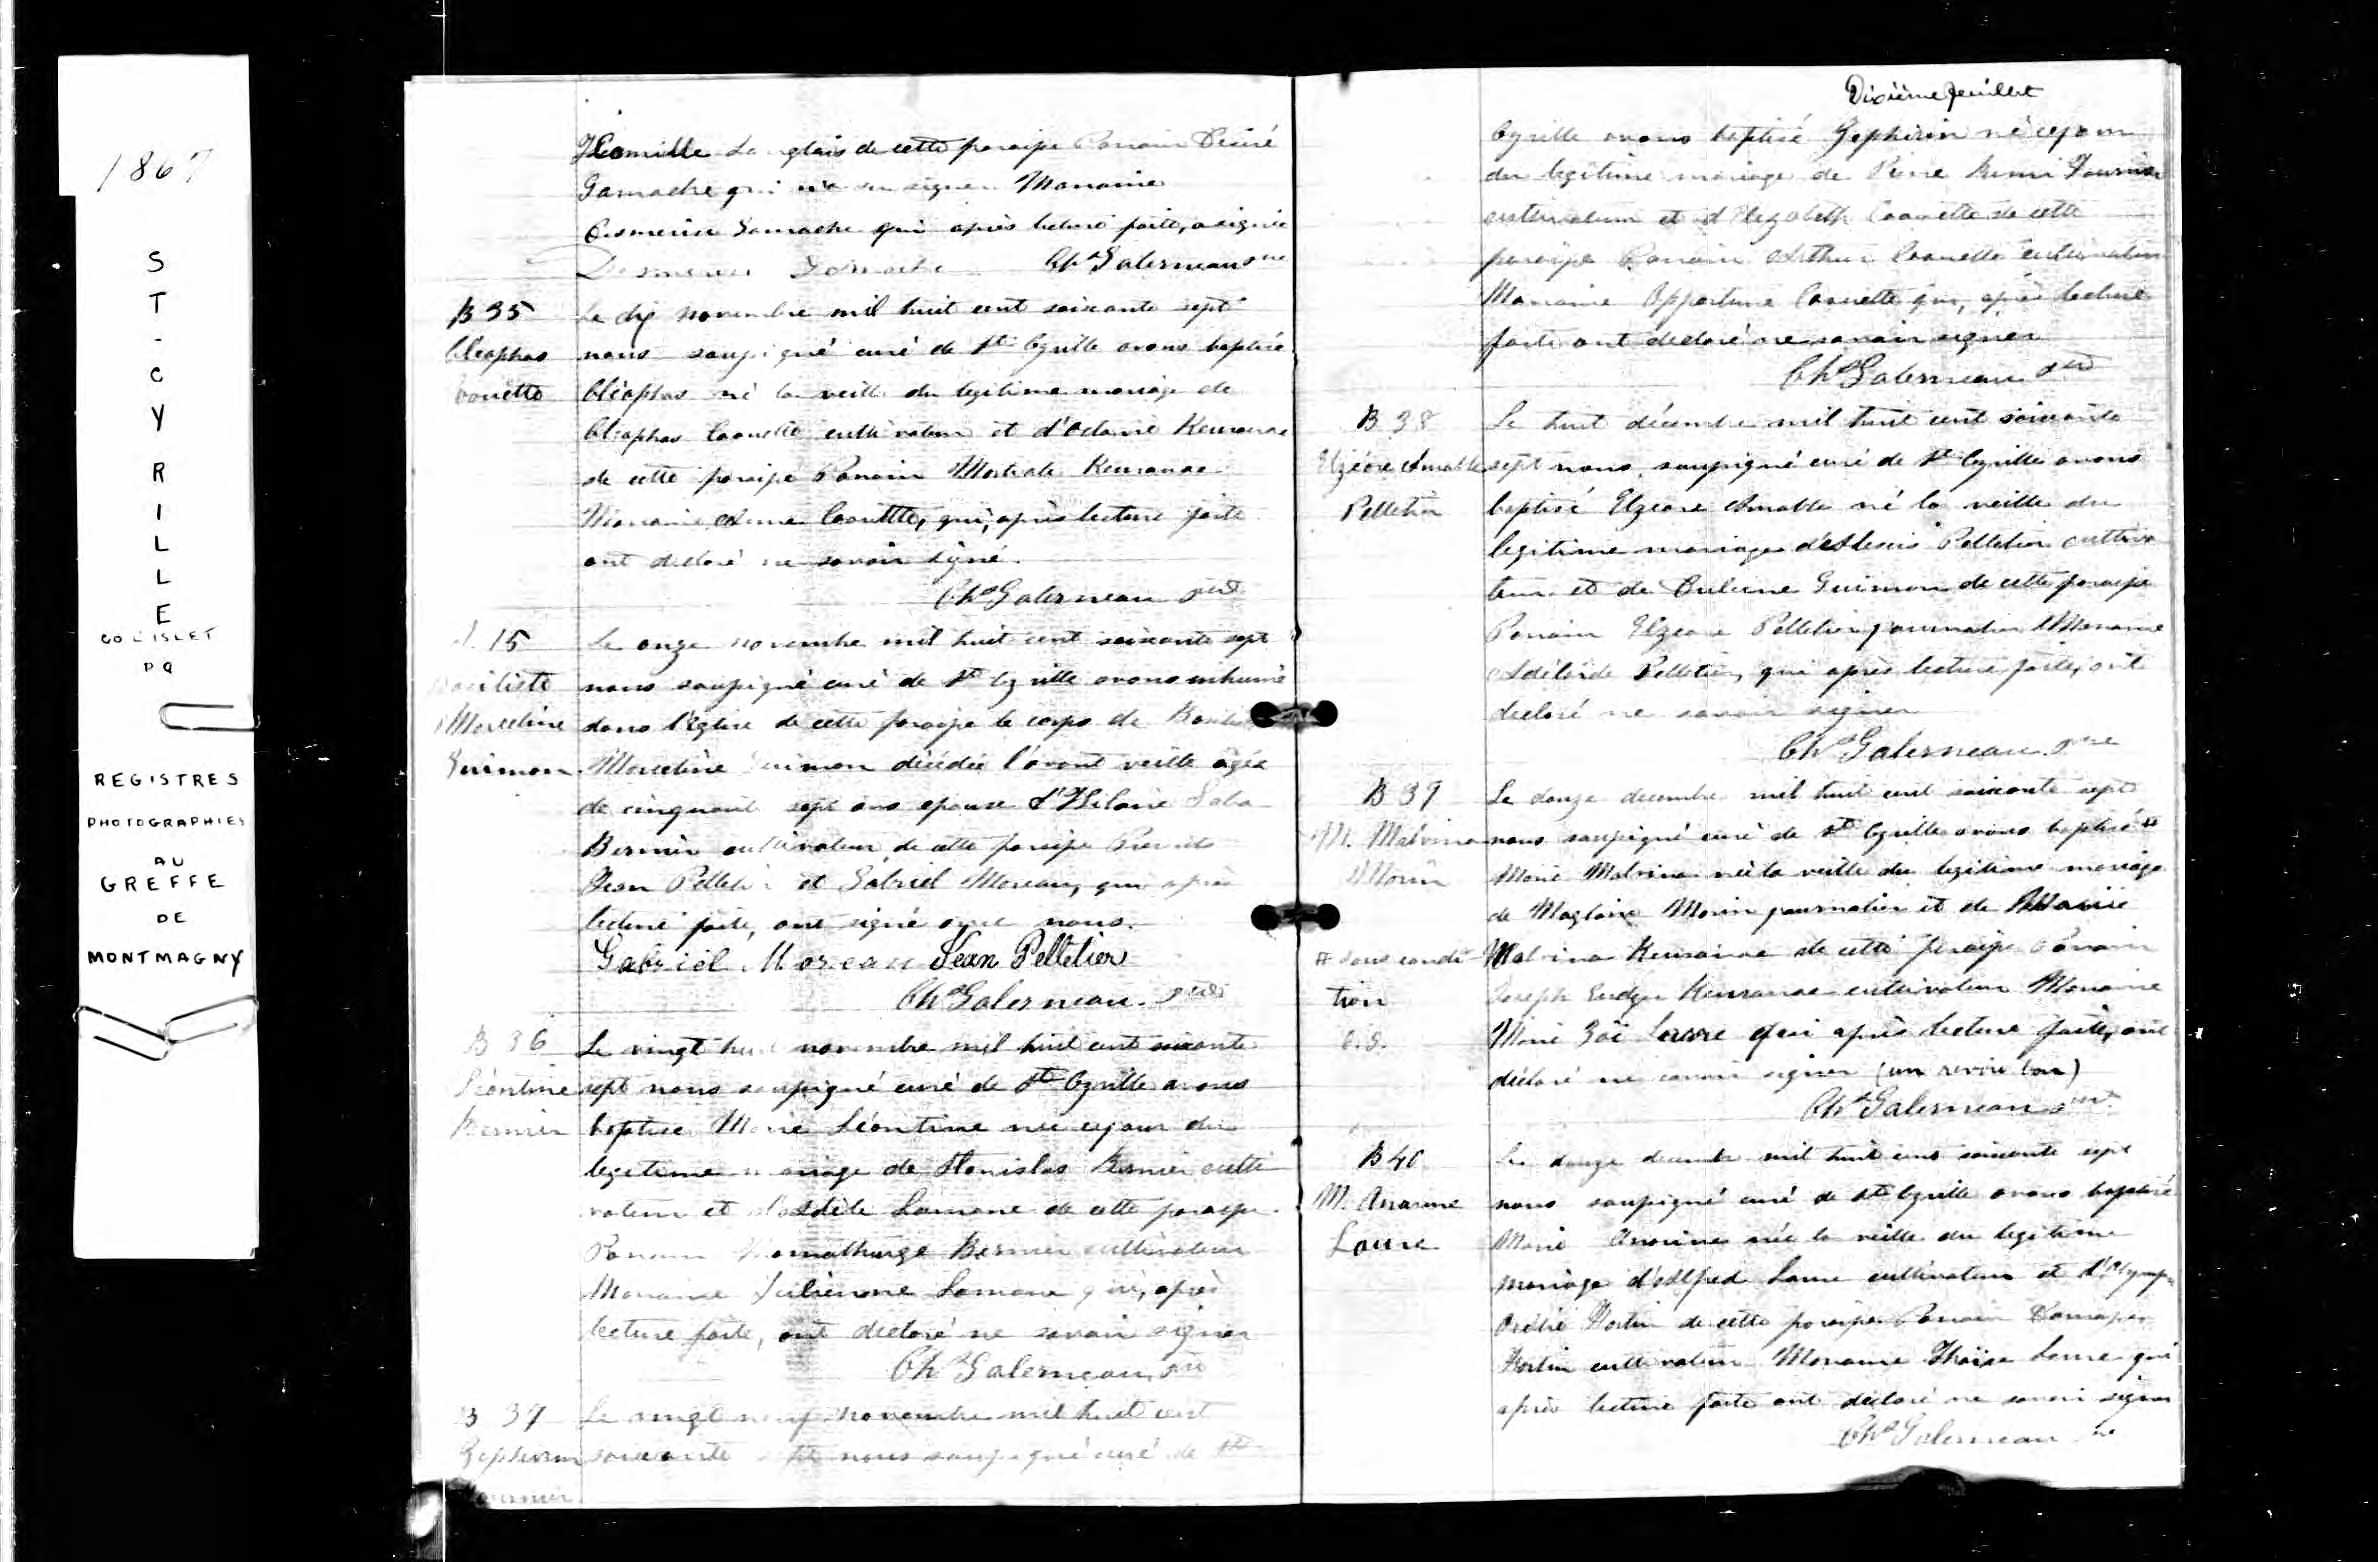 1867
ST-CYRILLE
CO L'ISLET
PQ
REGISTRES
PHOTOGRAPHIES
AU
GREFFE
DE
MONTMAGNY
Langlais de cette paroisse Parrain Désiré
Gamache qui n'a su signer Marraine
Gamache qui après lecture faite, a signée
Gamache Chs Galerneau ptre
B 35
Cléophas
Caouette
Le dix novembre mil huit cent soixante sept
nous soussigné curé de St Cyrille avons baptisé
Cléophas né la veille du legitime mariage de
Cléophas Caouette cultivateur et d'Octavie Keurouac
de cette paroisse Parrain Keurouac
Marraine Caouette, qui, après lecture faite
ont declaré ne savoir signé.
Chs Galerneau ptre
15
Marceline
Guimon
Le onze novembre mil huit cent soixante sept
nous soussigné curé de St Cyrille avons inhumé
dans l'Eglise de cette paroisse le corps de
Marceline Guimon décédée l'avant veille agée
de cinquante sept ans epouse d'Hilaire
Bernier cultivateur de cette paroisse
Jean Pelletier et Gabriel Moreau, qui après
lecture faite, ont signé avec nous.
Gabriel Moreau Jean Pelletier
Chs Galerneau ptre
B 36
Léontine
Bernier
Le vingt novembre mil huit cent soixante
sept nous soussigné curé de St Cyrille avons
baptisée Marie Léontine née ce jour du
legitime mariage de Stanislas Bernier culti
vateur et d'Adèle Lamarre de cette paroisse
Parrain Bernier cultivateur
Marraine Julienne Lamarre qui, après
lecture faite, ont declaré ne savoir signer
Chs Galerneau ptre
B 37
Zephirin
Fournier
Le vingt neuf novembre mil huit cent
soixante sept nous soussigné curé de St
Dixième feuillet
Cyrille avons baptisé Zephirin né ce jour
du legitime mariage de Pierre Fournier
cultivateur et d'Elizabeth Caouette de cette
paroisse Parrain Arthur Caouette cultivateur
Marraine Caouette qui, après lecture
faite ont declaré ne savoir signer
Chs Galerneau ptre
B 38
Elzéare Amable
Pelletier
Le huit décembre mil huit cent soixante
sept nous soussigné curé de St Cyrille avons
baptisé Elzeare Amable né la veille du
legitime mariage d'Alexis Pelletier cultiva
teur et de Guimon de cette paroisse
Parrain Elzeare Pelletier journalier Marraine
Adélaïde Pelletier, qui après lecture faite, ont
declaré ne savoir signer
Chs Galerneau ptre
B 39
M. Malvina
Morin
Le douze decembre mil huit cent soixante sept
nous soussigné curé de St Cyrille avons baptisé #
Marie Malvina née la veille du legitime mariage
de Magloire Morin journalier et de Marie
# sous condi
tion
C.G.
Malvina Keurouac de cette paroisse Parrain
Joseph Keurouac cultivateur Marraine
Marie Zoé qui après lecture faite, ont
déclaré ne savoir signer (un renvoi bon)
Chs Galerneau ptre
B 40
M.
Laure
Le douze decembre mil huit cent soixante sept
nous soussigné curé de St Cyrille avons baptisé
Marie née la veille du legitime
mariage d'Alfred cultivateur et
Fortin de cette paroisse Parrain
Fortin cultivateur Marraine qui
après lecture faite ont declaré ne savoir signer
Chs Galerneau ptre